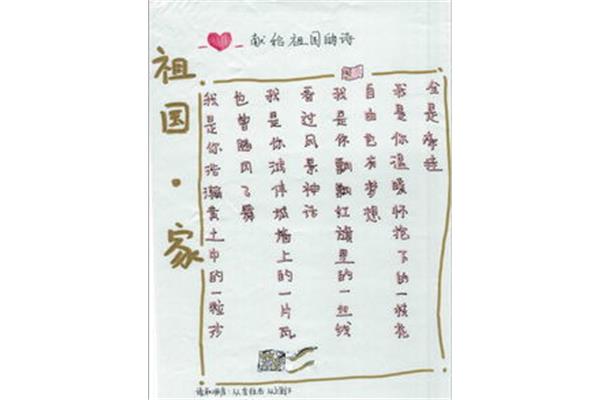 献给祖国的诗
祖国·家
我是你浩瀚黄土中的一粒沙
也曾风飞舞
我是你伟城墙上的一片瓦
看过风景神话
我是你飘飘红旗里的一丝线
自由也有梦想
我是你温暖怀抱下的一枝花
全是